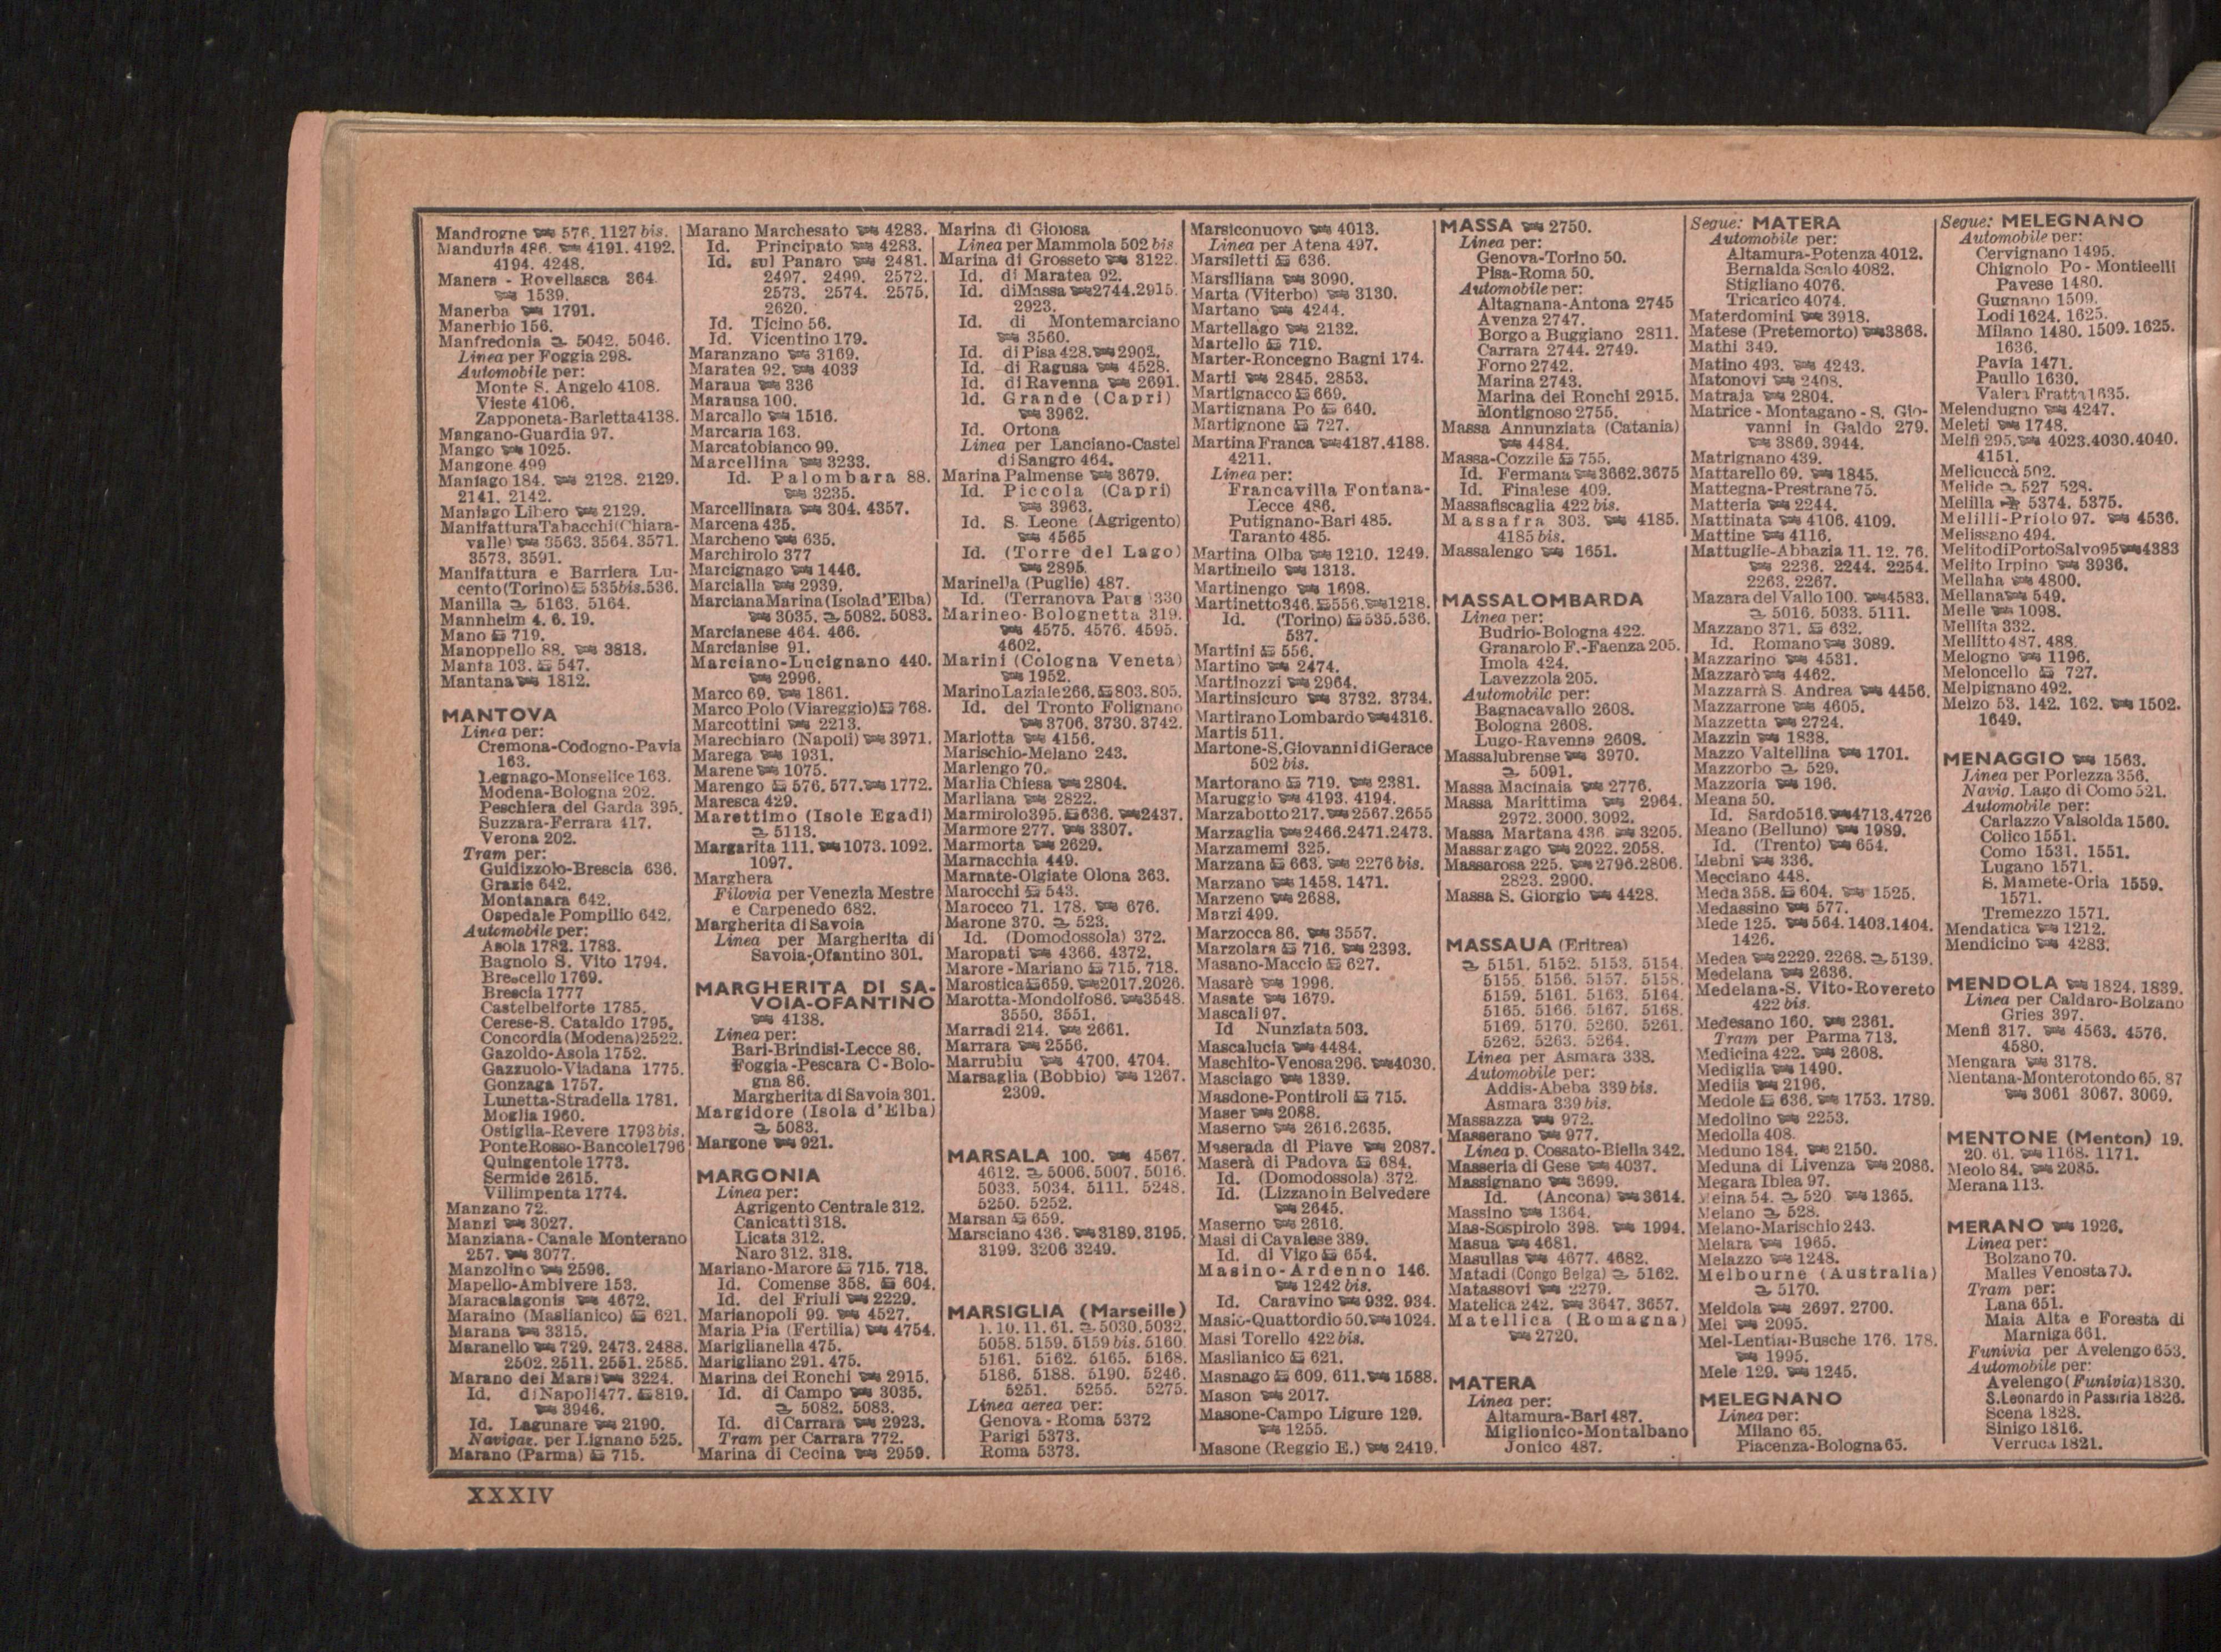 Mandrogne 576. 1127 bis.
Manduria 486. 4191. 4192.
4194. 4248.
Manera - Rovellasca 364.
1539.
Manerba 1791.
Manerbio 156.
Manfredonia 5042. 5046.
Linea per Foggia 298.
Automobile per:
Monte S. Angelo 4108.
Vieste 4106.
Zapponeta-Barletta 4138.
Mangano-Guardia 97.
Mango 1025.
Mangone 499
Maniago 184. 2128. 2129.
2141. 2142.
Maniago Libero 2129.
Manifattura Tabacchi (Chiara-
valle) 3563. 3564. 3571.
3573. 3591.
Manifattura e Barriera Lu-
cento (Torino) 535 bis. 536.
Manilla 5163. 5164.
Mannheim 4. 6. 19.
Mano 719.
Manoppello 88. 3818.
Manta 103. 547.
Mantana 1812.
MANTOVA
Linea per:
Cremona-Codogno-Pavia
163.
Legnago-Monselice 163.
Modena-Bologna 202.
Peschiera del Garda 395.
Suzzara-Ferrara 417.
Verona 202.
Tram per:
Guidizzolo-Brescia 636.
Grazie 642.
Montanara 642.
Ospedale Pompilio 642.
Automobile per:
Asola 1782. 1783.
Bagnolo S. Vito 1794.
Brescello 1769.
Brescia 1777
Castelbelforte 1785.
Cerese-S. Cataldo 1795.
Concordia (Modena) 2522.
Gazoldo-Asola 1752.
Gazzuolo-Viadana 1775.
Gonzaga 1757.
Lunetta-Stradella 1781.
Moglia 1960.
Ostiglia-Revere 1793 bis.
Ponte Rosso-Bancole 1796
Quingentole 1773.
Sermide 2615.
Villimpenta 1774.
Manzano 72.
Manzi 3027.
Manziana - Canale Monterano
257. 3077.
Manzolino 2596.
Mapello-Ambivere 153.
Maracalagonis 4672.
Maraino (Maslianico) 621.
Marana 3315.
Maranello 729. 2473. 2488.
2502. 2511. 2551. 2585.
Marano dei Marsi 3224.
Id. di Napoli 477. 819.
3946.
Id. Lagunare 2190.
Navigaz. per Lignano 525.
Marano (Parma) 715.
Marano Marchesato 4283.
Id. Principato 4283.
Id. sul Panaro 2481.
2497. 2499. 2572.
2573. 2574. 2575.
2620.
Id. Ticino 56.
Id. Vicentino 179.
Maranzano 3169.
Maratea 92. 4039
Maraua 336
Marausa 100.
Marcallo 1516.
Marcaria 163.
Marcatobianco 99.
Marcellina 3233.
Id. Palombara 88.
3235.
Marcellinara 304. 4357.
Marcena 435.
Marcheno 635.
Marchirolo 377
Marcignago 1446.
Marcialla 2939.
Marciana Marina (Isola d'Elba)
3035. 5082. 5083.
Marcianese 464. 466.
Marcianise 91.
Marciano-Lucignano 440.
2996.
Marco 69. 1861.
Marco Polo (Viareggio) 768.
Marcottini 2213.
Marechiaro (Napoli) 3971.
Marega 1931.
Marene 1075.
Marengo 576. 577. 1772.
Maresca 429.
Marettimo (Isole Egadi)
5113.
Margarita 111. 1073. 1092.
1097.
Marghera
Filovia per Venezia Mestre
e Carpenedo 682.
Margherita di Savoia
Linea per Margherita di
Savoia-Ofantino 301.
MARGHERITA DI SA-
VOIA-OFANTINO
4138.
Linea per:
Bari-Brindisi-Lecce 86.
Foggia-Pescara C-Bolo-
gna 86.
Margherita di Savoia 301.
Margidore (Isola d'Elba)
5083.
Margone 921.
MARGONIA
Linea per:
Agrigento Centrale 312.
Canicattì 318.
Licata 312.
Naro 312. 318.
Mariano-Marore 715. 718.
Id. Comense 358. 604.
Id. del Friuli 2229.
Marianopoli 99. 4527.
Maria Pia (Fertilia) 4754.
Mariglianella 475.
Marigliano 291. 475.
Marina dei Ronchi 2915.
Id. di Campo 3035.
5082. 5083.
Id. di Carrara 2923.
Tram per Carrara 772.
Marina di Cecina 2959.
Marina di Gioiosa
Linea per Mammola 502 bis
Marina di Grosseto 3122.
Id. di Maratea 92.
Id. di Massa 2744. 2915.
2923.
Id. di Montemarciano
3560.
Id. di Pisa 428. 2902.
Id. di Ragusa 4528.
Id. di Ravenna 2691.
Id. Grande (Capri)
3962.
Id. Ortona
Linea per Lanciano-Castel
di Sangro 464.
Marina Palmense 3679.
Id. Piccola (Capri)
3963.
Id. S. Leone (Agrigento)
4565
Id. (Torre del Lago)
2895.
Marinella (Puglie) 487.
Id. (Terranova Paus 330
Marineo-Bolognetta 319.
4575. 4576. 4595.
4602.
Marini (Cologna Veneta)
1952.
Marino Laziale 266. 803. 805.
Id. del Tronto Folignano
3706. 3730. 3742.
Mariotta 4156.
Marischio-Melano 243.
Marlengo 70.
Marlia Chiesa 2804.
Marliana 2822.
Marmirolo 395. 636. 2437.
Marmore 277. 3307.
Marmorta 2629.
Marnacchia 449.
Marnate-Olgiate Olona 363.
Marocchi 543.
Marocco 71. 178. 676.
Marone 370. 523.
Id. (Domodossola) 372.
Maropati 4366. 4372.
Marore-Mariano 715. 718.
Marostica 659. 2017. 2026.
Marotta-Mondolfo 86. 3548.
3550. 3551.
Marradi 214. 2661.
Marrara 2556.
Marrubiu 4700. 4704.
Marsaglia (Bobbio) 1267.
2309.
MARSALA 100. 4567.
4612. 5006. 5007. 5016.
5033. 5034. 5111. 5248.
5250. 5252.
Marsan 659.
Marsciano 436. 3189. 3195.
3199. 3206 3249.
MARSIGLIA (Marseille)
1. 10. 11. 61. 5030. 5032.
5058. 5159. 5159 bis. 5160.
5161. 5162. 5165. 5168.
5186. 5188. 5190. 5246.
5251. 5255. 5275.
Linea aerea per:
Genova - Roma 5372
Parigi 5373.
Roma 5373.
Marsiconuovo 4013.
Linea per Atena 497.
Marsiletti 636.
Marsiliana 3090.
Marta (Viterbo) 3130.
Martano 4244.
Martellago 2132.
Martello 719.
Marter-Roncegno Bagni 174.
Marti 2845. 2853.
Martignacco 669.
Martignana Po 640.
Martignone 727.
Martina Franca 4187. 4188.
4211.
Linea per:
Francavilla Fontana-
Lecce 486.
Putignano-Bari 485.
Taranto 485.
Martina Olba 1210. 1249.
Martinello 1313.
Martinengo 1698.
Martinetto 346. 556. 1218.
Id. (Torino) 535. 536.
537.
Martini 556.
Martino 2474.
Martinozzi 2964.
Martinsicuro 3732. 3734.
Martirano Lombardo 4316.
Martis 511.
Martone-S. Giovanni di Gerace
502 bis.
Martorano 719. 2381.
Maruggio 4193. 4194.
Marzabotto 217. 2567. 2655
Marzaglia 2466. 2471. 2473.
Marzamemi 325.
Marzana 663. 2276 bis.
Marzano 1458. 1471.
Marzeno 2688.
Marzi 499.
Marzocca 86. 3557.
Marzolara 716. 2393.
Masano-Maccio 627.
Masarè 1996.
Masate 1679.
Mascali 97.
Id Nunziata 503.
Mascalucia 4484.
Maschito-Venosa 296. 4030.
Masciago 1339.
Masdone-Pontiroli 715.
Maser 2088.
Maserno 2616. 2635.
Maserada di Piave 2087.
Maserà di Padova 684.
Id. (Domodossola) 372.
Id. (Lizzano in Belvedere
2645.
Maserno 2616.
Masi di Cavalese 389.
Id. di Vigo 654.
Masino-Ardenno 146.
1242 bis.
Id. Caravino 932. 934.
Masio-Quattordio 50. 1024.
Masi Torello 422 bis.
Maslianico 621.
Masnago 609. 611. 1588.
Mason 2017.
Masone-Campo Ligure 129.
1255.
Masone (Reggio E.) 2419.
MASSA 2750.
Linea per:
Genova-Torino 50.
Pisa-Roma 50.
Automobile per:
Altagnana-Antona 2745
Avenza 2747.
Borgo a Buggiano 2811.
Carrara 2744. 2749.
Forno 2742.
Marina 2743.
Marina dei Ronchi 2915.
Montignoso 2755.
Massa Annunziata (Catania)
4484.
Massa-Cozzile 755.
Id. Fermana 3662. 3675
Id. Finalese 409.
Massafiscaglia 422 bis.
Massafra 303. 4185.
4185 bis.
Massalengo 1651.
MASSALOMBARDA
Linea per:
Budrio-Bologna 422.
Granarolo F.-Faenza 205.
Imola 424.
Lavezzola 205.
Automobile per:
Bagnacavallo 2608.
Bologna 2608.
Lugo-Ravenna 2608.
Massalubrense 3970.
5091.
Massa Macinaia 2776.
Massa Marittima 2964.
2972. 3000. 3092.
Massa Martana 436. 3205.
Massanzago 2022. 2058.
Massarosa 225. 2796. 2806.
2823. 2900.
Massa S. Giorgio 4428.
MASSAUA (Eritrea)
5151. 5152. 5153. 5154.
5155. 5156. 5157. 5158.
5159. 5161. 5163. 5164.
5165. 5166. 5167. 5168.
5169. 5170. 5260. 5261.
5262. 5263. 5264.
Linea per Asmara 338.
Automobile per:
Addis-Abeba 339 bis.
Asmara 339 bis.
Massazza 972.
Masserano 977.
Linea p. Cossato-Biella 342.
Masseria di Gese 4037.
Massignano 3699.
Id. (Ancona) 3614.
Massino 1364.
Mas-Sospirolo 398. 1994.
Masua 4681.
Masullas 4677. 4682.
Matadi (Congo Belga) 5162.
Matassovi 2279.
Matelica 242. 3647. 3657.
Matellica (Romagna)
2720.
MATERA
Linea per:
Altamura-Bari 487.
Miglionico-Montalbano
Jonico 487.
Segue: MATERA
Automobile per:
Altamura-Potenza 4012.
Bernalda Scalo 4082.
Stigliano 4076.
Tricarico 4074.
Materdomini 3918.
Matese (Pretemorto) 3868.
Mathi 349.
Matino 493. 4243.
Matonovi 2408.
Matraja 2804.
Matrice - Montagano - S. Gio-
vanni in Galdo 279.
3869. 3944.
Matrignano 439.
Mattarello 69. 1845.
Mattegna-Prestrane 75.
Matteria 2244.
Mattinata 4106. 4109.
Mattine 4116.
Mattuglie-Abbazia 11. 12. 76.
2236. 2244. 2254.
2263. 2267.
Mazara del Vallo 100. 4583.
5016. 5033. 5111.
Mazzano 371. 632.
Id. Romano 3089.
Mazzarino 4531.
Mazzarò 4462.
Mazzarrà S. Andrea 4456.
Mazzarrone 4605.
Mazzetta 2724.
Mazzin 1838.
Mazzo Valtellina 1701.
Mazzorbo 529.
Mazzoria 196.
Meana 50.
Id. Sardo 516. 4713. 4726
Meano (Belluno) 1989.
Id. (Trento) 654.
336.
Mecciano 448.
Meda 358. 604. 1525.
Medassino 577.
Mede 125. 564. 1403. 1404.
1426.
Medea 2229. 2268. 5139.
Medelana 2636.
Medelana-S. Vito-Rovereto
422 bis.
Medesano 160. 2361.
Tram per Parma 713.
Medicina 422. 2608.
Mediglia 1490.
Mediis 2196.
Medole 636. 1753. 1789.
Medolino 2253.
Medolla 408.
Meduno 184. 2150.
Meduna di Livenza 2086.
Megara Iblea 97.
Meina 54. 520 1365.
Melano 528.
Melano-Marischio 243.
Melara 1965.
Melazzo 1248.
Melbourne (Australia)
5170.
Meldola 2697. 2700.
Mel 2095.
Mel-Lentiai-Busche 176. 178.
1995.
Mele 129. 1245.
MELEGNANO
Linea per:
Milano 65.
Piacenza-Bologna 65.
Segue: MELEGNANO
Automobile per:
Cervignano 1495.
Chignolo Po - Monticelli
Pavese 1480.
Gugnano 1509.
Lodi 1624. 1625.
Milano 1480. 1509. 1625.
1636.
Pavia 1471.
Paullo 1630.
Valera Fratta 1635.
Melendugno 4247.
Meleti 1748.
Melfi 295. 4023. 4030. 4040.
4151.
Melicuccà 502.
Melide 527 528.
Melilla 5374. 5375.
Melilli-Priolo 97. 4536.
Melissano 494.
Melito di Porto Salvo 95 4383
Melito Irpino 3936.
Mellaha 4800.
Mellana 549.
Melle 1098.
Mellita 332.
Mellitto 487. 488.
Melogno 1196.
Meloncello 727.
Melpignano 492.
Melzo 53. 142. 162. 1502.
1649.
MENAGGIO 1563.
Linea per Porlezza 356.
Navig. Lago di Como 521.
Automobile per:
Carlazzo Valsolda 1560.
Colico 1551.
Como 1531. 1551.
Lugano 1571.
S. Mamete-Oria 1559.
1571.
Tremezzo 1571.
Mendatica 1212.
Mendicino 4283.
MENDOLA 1824. 1839.
Linea per Caldaro-Bolzano
Gries 397.
Menfi 317. 4563. 4576.
4580.
Mengara 3178.
Mentana-Monterotondo 65. 87
3061 3067. 3069.
MENTONE (Menton) 19.
20. 61. 1168. 1171.
Meolo 84. 2085.
Merana 113.
MERANO 1926.
Linea per:
Bolzano 70.
Malles Venosta 70.
Tram per:
Lana 651.
Maia Alta e Foresta di
Marniga 661.
Funivia per Avelengo 653.
Automobile per:
Avelengo (Funivia) 1830.
S. Leonardo in Passiria 1826.
Scena 1828.
Sinigo 1816.
Verruca 1821.
XXXIV